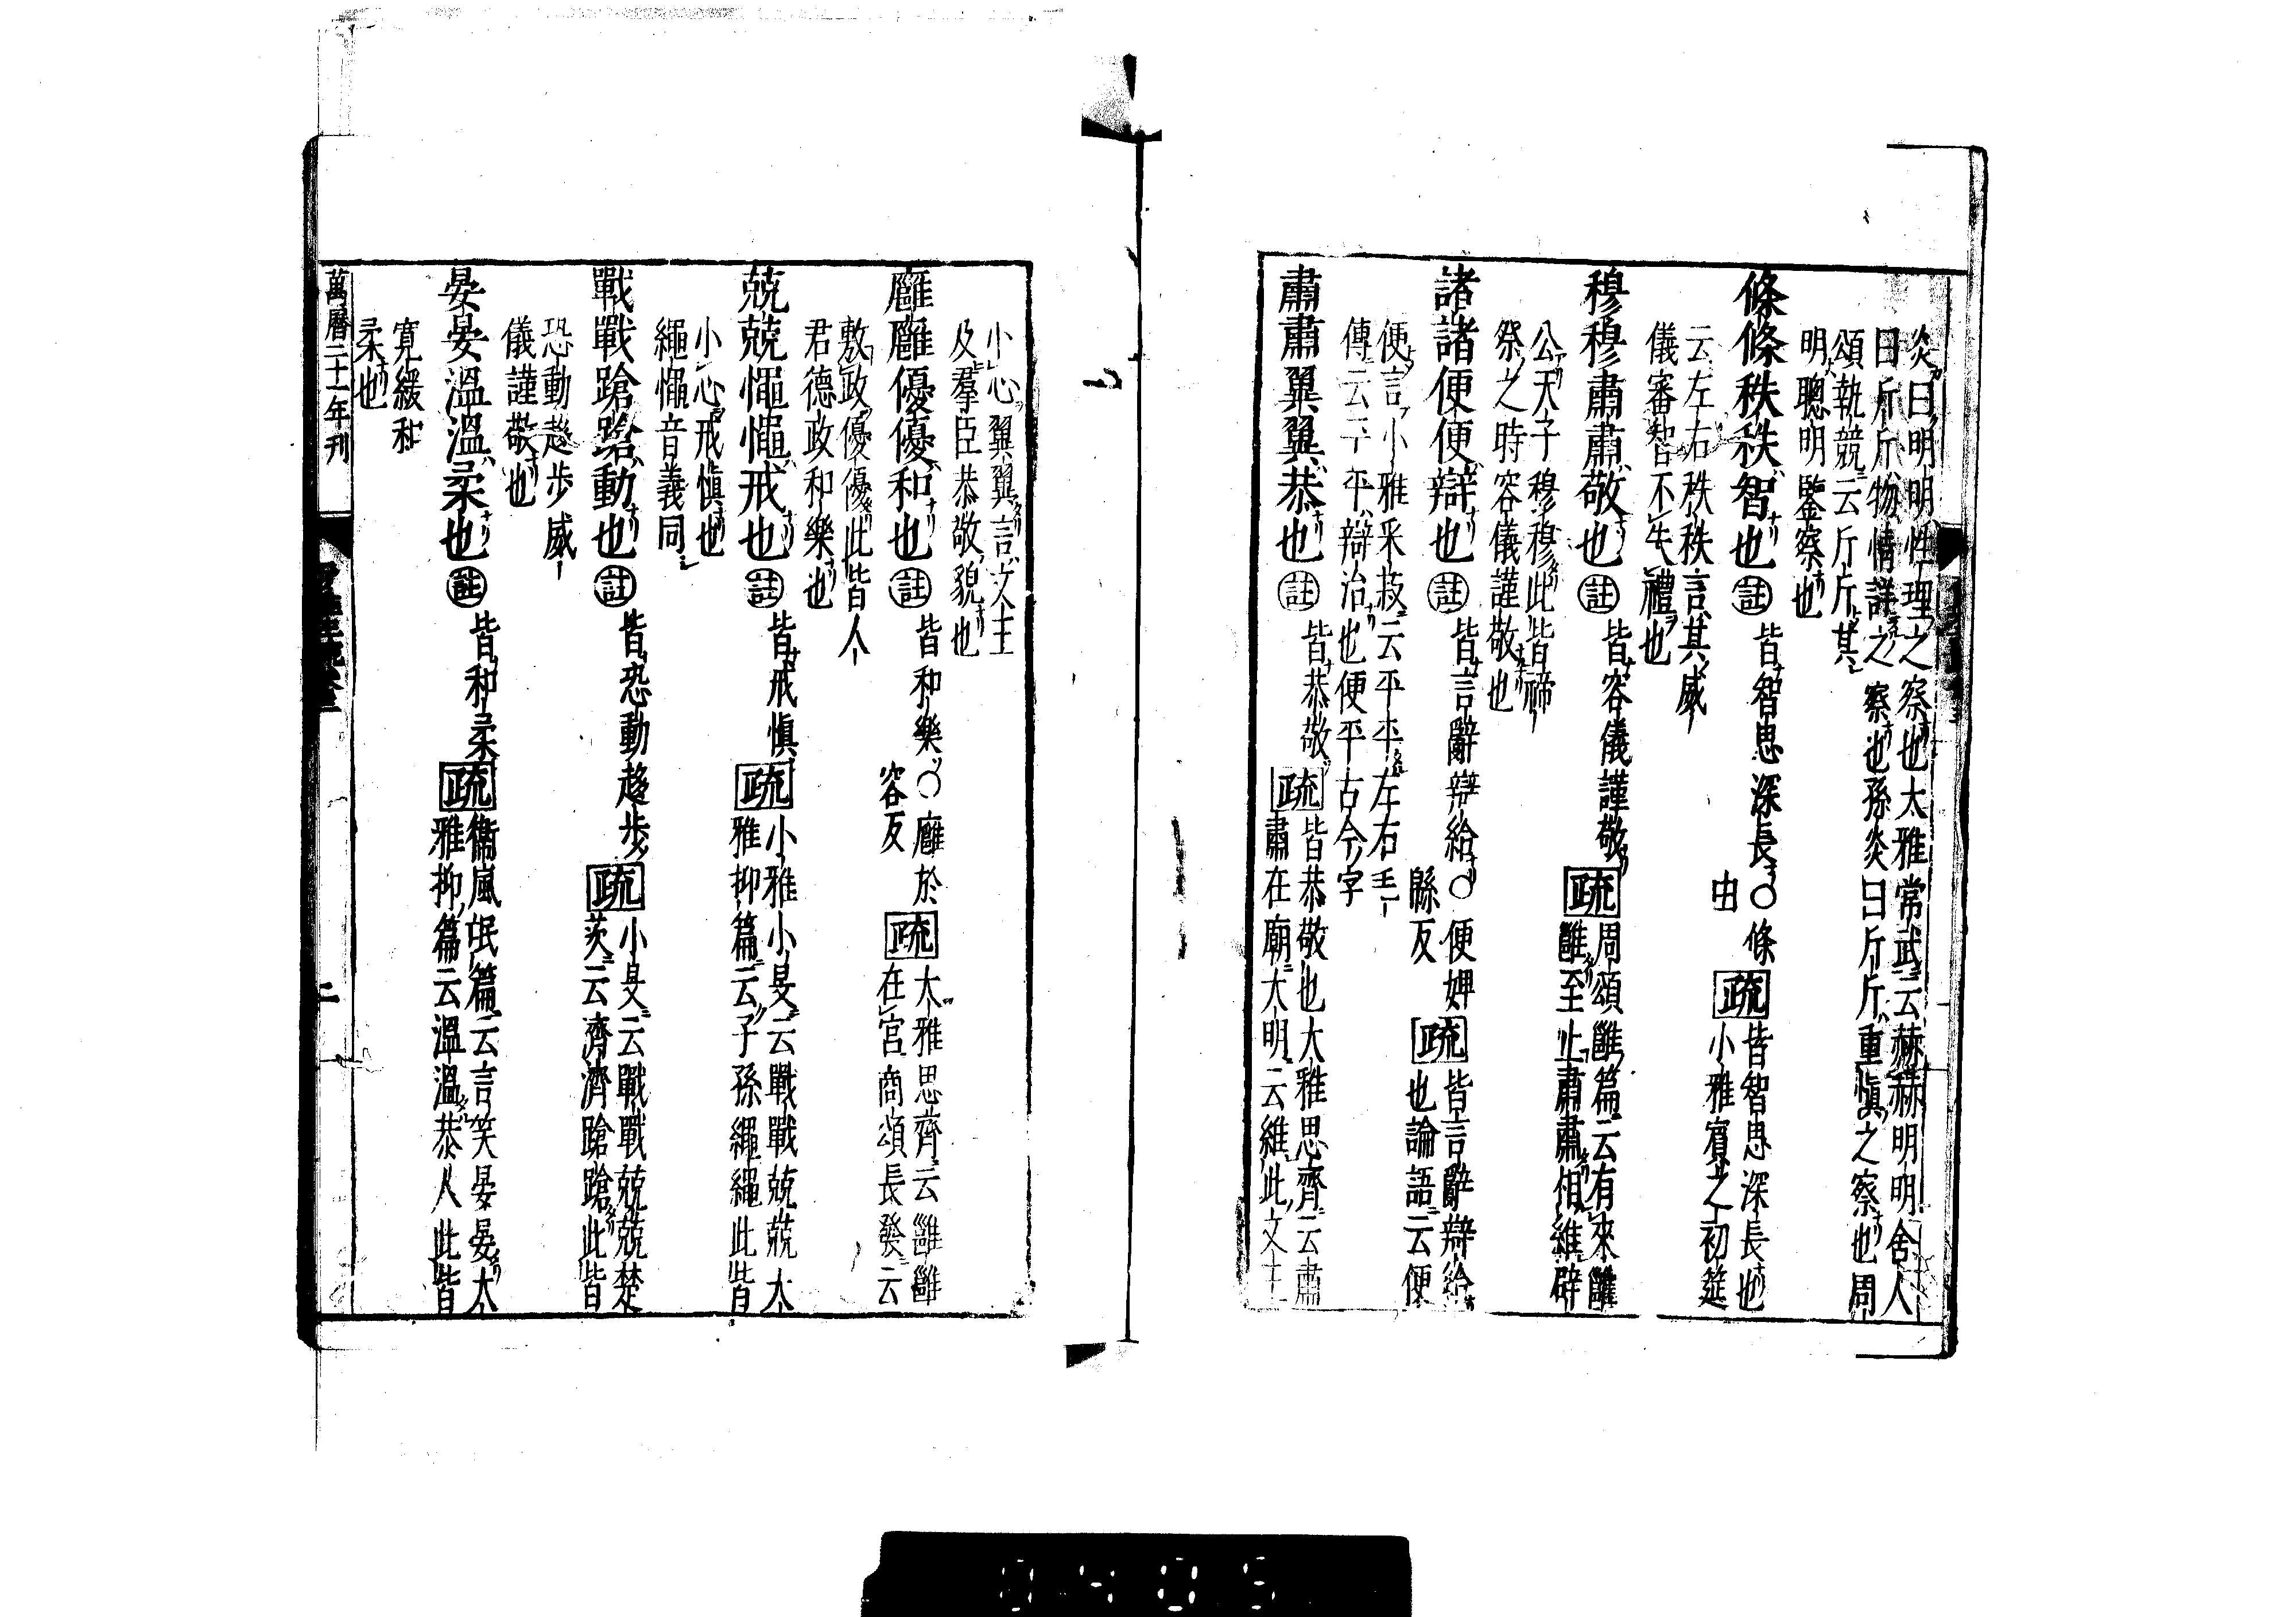 炎曰明明性理之察也大雅常武云赫赫明明舍人
曰斤斤物情詳之察也孫炎曰斤斤重愼之察也周
頌執競云斤斤其
明聰明鑒察也
條條秩秩智也註皆智思深長○條
由
疏皆智思深長也
小雅賓之初筵
云左右秩秩言其威
儀審智不失禮也
穆穆肅肅敬也註皆容儀謹敬
疏周頌雝篇云有來雝
雝至止肅肅相維辟
公天子穆穆此皆禘
祭之時容儀謹敬也
諸諸便便辯也註皆言辭辯給○便婢
緜反
疏皆言辭辯給
也論語云便
便言小雅采菽云平平左右毛
傳云平平辯治也便平古今字
肅肅翼翼恭也註皆恭敬
疏皆恭敬也大雅思齊云肅
肅在廟大明云維此文王
小心翼翼言文王
及羣臣恭敬貌也
廱廱優優和也註皆和樂○廱於
容反
疏大雅思齊云雝雝
在宮商頌長發云
敷政優優此皆人
君德政和樂也
兢兢憴憴戒也註皆戒愼
疏小雅小旻云戰戰兢兢大
雅抑篇云子孫繩繩此皆
小心戒愼也
繩憴音義同
戰戰蹌蹌動也註皆恐動趨步
疏小旻云戰戰兢兢楚
茨云濟濟蹌蹌此皆
恐動趨步威
儀謹敬也
晏晏溫溫柔也註皆和柔
疏衞風氓篇云言笑晏晏大
雅抑篇云溫溫恭人此皆
寬緩和
柔也
萬曆二十一年刊